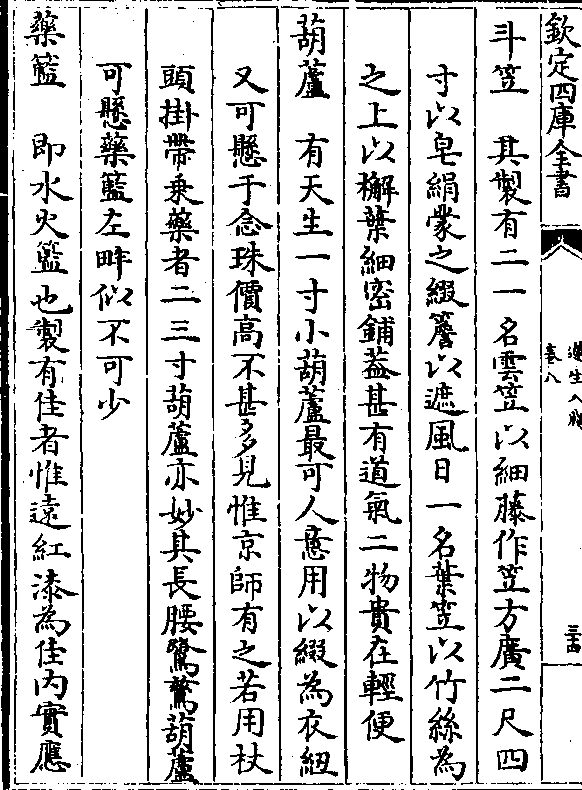 欽定四庫全書
遵生八牋
卷八
三十四
斗笠　其製有二一名雲笠以細藤作笠方廣二尺四
寸以皂絹蒙之綴簷以遮風日一名葉笠以竹絲為
之上以檞葉細密鋪蓋甚有道氣二物貴在輕便
葫蘆　有天生一寸小葫蘆最可人意用以綴為衣紐
又可懸于念珠價高不甚多見惟京師有之若用杖
頭掛帶乗藥者二三寸葫蘆亦妙其長腰鷺鷥葫蘆
可懸藥籃左畔似不可少
藥籃　即水火籃也製有佳者惟遠紅漆為佳内實應